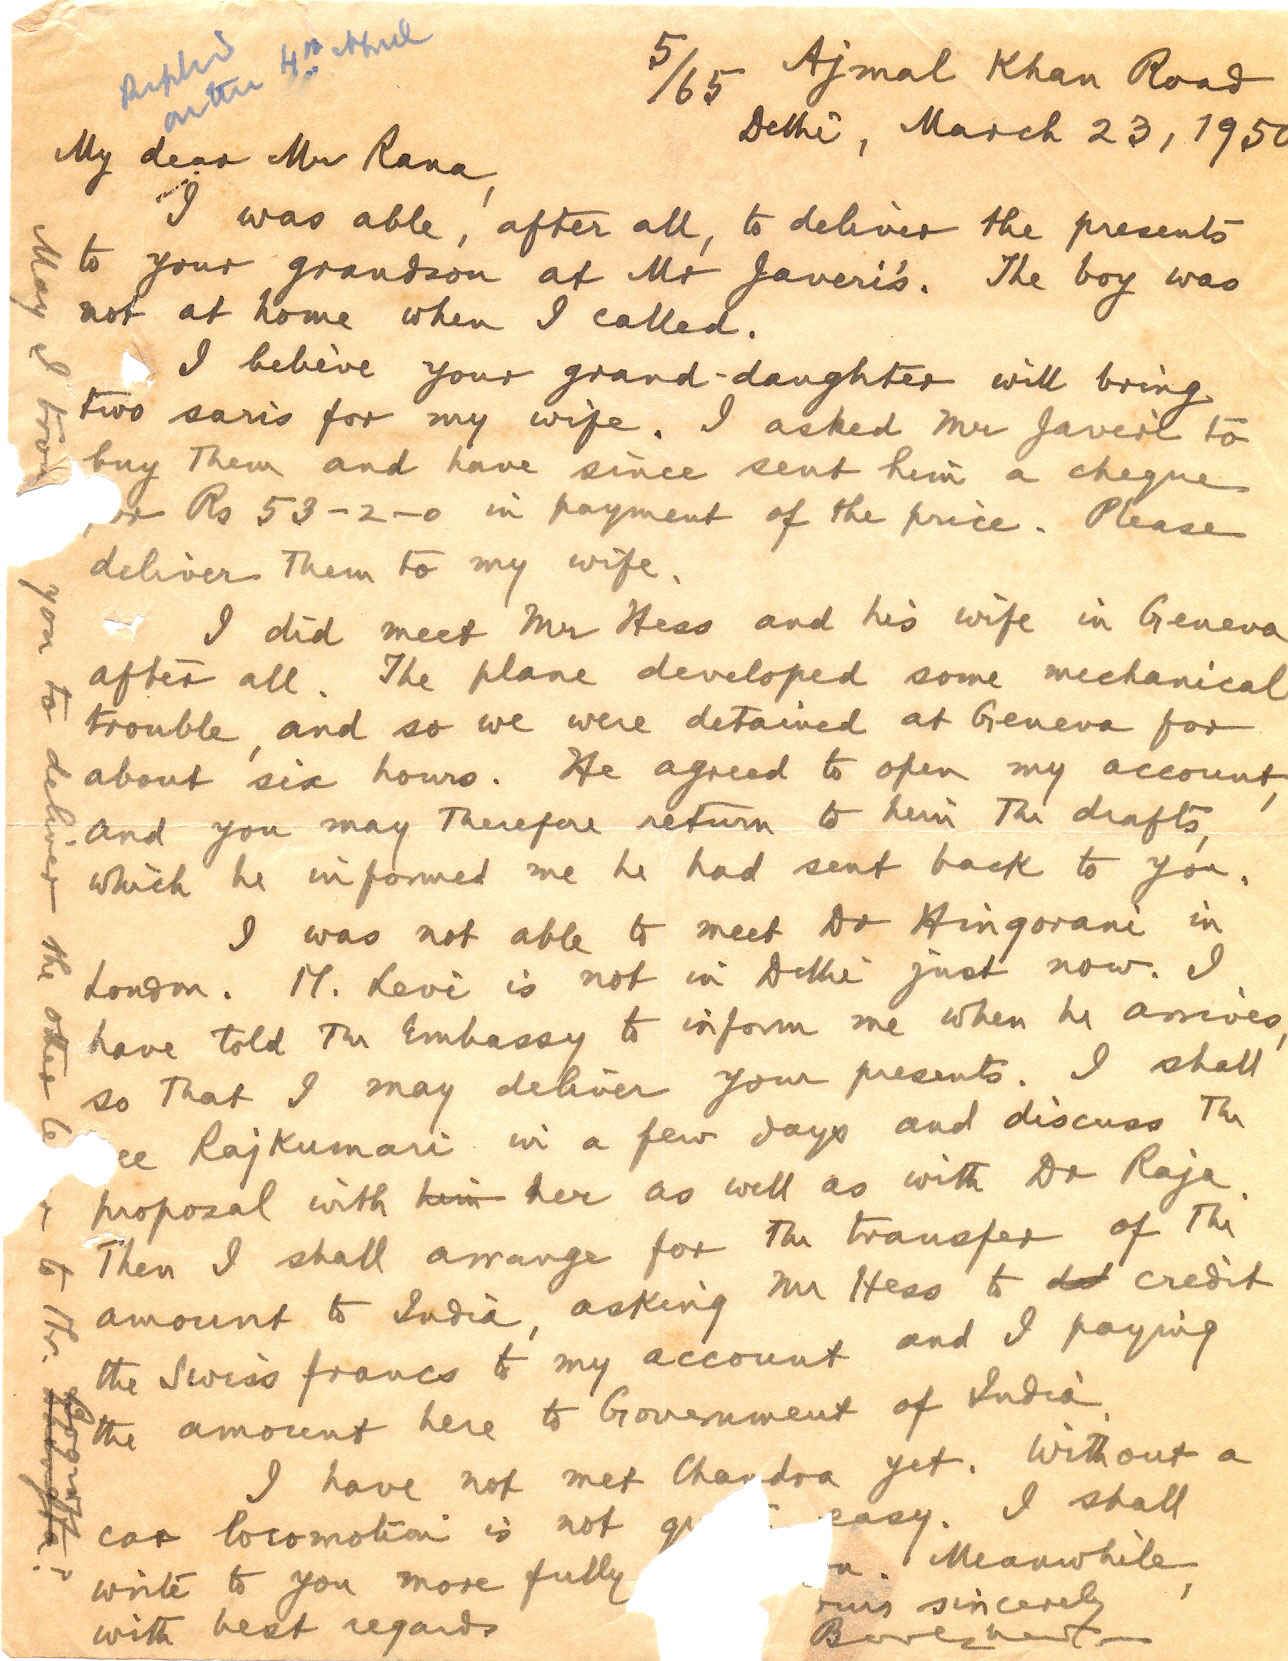 Replied
on the 4th April
5/65 Ajmal Khan Road
Delhi, March 23, 1950
My dear Mr Rana,
I was able, after all, to deliver the presents
to your grandson at Mr Javeri's. The boy was
not at home when I called.
I believe your grand-daughter will bring
two saris for my wife. I asked Mr Javeri to
buy them and have since sent him a cheque
for Rs 53-2-0 in payment of the price. Please
deliver them to my wife.
I did meet Mr Hess and his wife in Geneva
after all. The plane developed some mechanical
trouble, and so we were detained at Geneva for
about six hours. He agreed to open my account,
and you may therefore return to him the drafts,
which he informed me he had sent back to you.
I was not able to meet Dr Hingorani in
London. M. Levi is not in Delhi just now. I
have told the Embassy to inform me when he arrives,
so that I may deliver your presents. I shall
ee Rajkumari in a few days and discuss the
proposal with him her as well as with Dr Raja.
Then I shall arrange for the transfer of the
amount to India, asking Mr Hess to credit
the Swiss francs to my account and I paying
the amount here to Government of India.
I have not met Chandra yet. Without a
car locomotion is not easy. I shall
write to you more fully Meanwhile,
with best regards
ours sincerely
May I you to deliver the other to Mr.